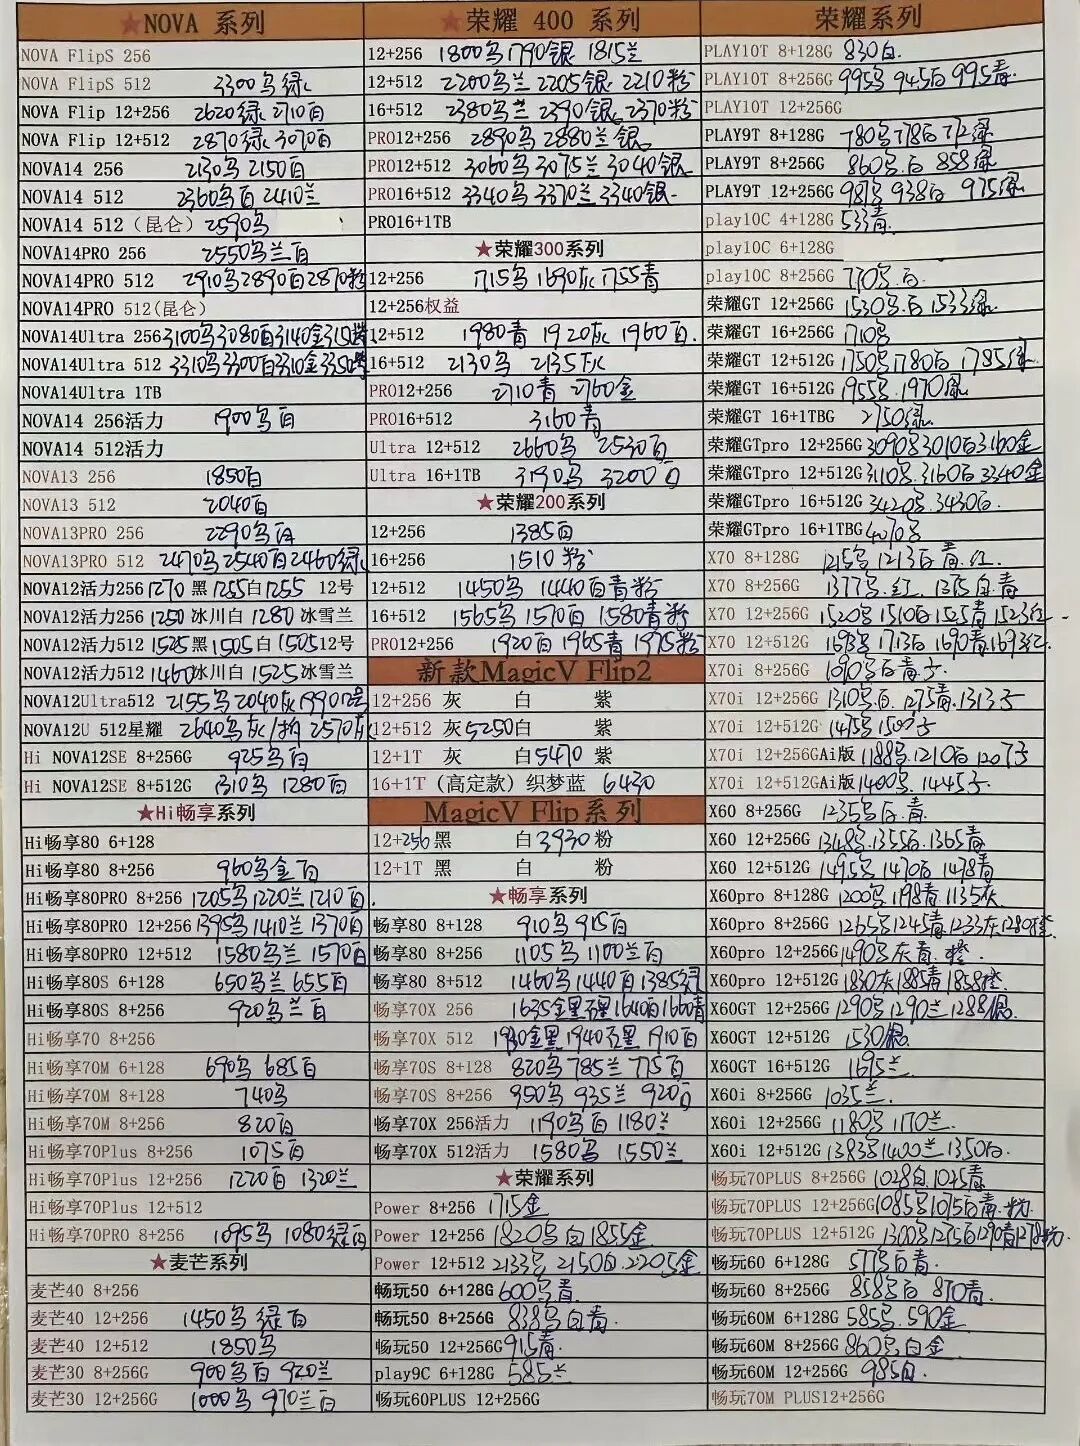 ★NOVA 系列
NOVA FlipS 256
NOVA FlipS 512 3300鸟绿
NOVA Flip 12+256 2620绿 2710白
NOVA Flip 12+512 2870绿 3070白
NOVA14 256 2130鸟 2150白
NOVA14 512 2360鸟白 2410兰
NOVA14 512（昆仑）2590鸟
NOVA14PRO 256 2550鸟兰白
NOVA14PRO 512 2910鸟2890白2870粉
NOVA14PRO 512(昆仑)
NOVA14Ultra 256 3100鸟3080白3140金
NOVA14Ultra 512 3310鸟3300白3310金
NOVA14Ultra 1TB
NOVA14 256活力 1900鸟白
NOVA14 512活力
NOVA13 256 1850白
NOVA13 512 2040白
NOVA13PRO 256 2290鸟白
NOVA13PRO 512 2470鸟2540白2460绿
NOVA12活力256 1270 黑 1255白1255 12号
NOVA12活力256 1250 冰川白 1280 冰雪兰
NOVA12活力512 1525黑1505白 1505 12号
NOVA12活力512 1460冰川白 1525冰雪兰
NOVA12Ultra512 2155鸟2040灰1990
NOVA12U 512星耀 2640鸟灰 2570灰
Hi NOVA12SE 8+256G 925鸟白
Hi NOVA12SE 8+512G 1310鸟 1280白
★Hi畅享系列
Hi畅享80 6+128
Hi畅享80 8+256 960鸟金白
Hi畅享80PRO 8+256 1205鸟1220兰1210白
Hi畅享80PRO 12+256 1395鸟1410兰1370白
Hi畅享80PRO 12+512 1580鸟兰 1570白
Hi畅享80S 6+128 650鸟兰 655白
Hi畅享80S 8+256 920鸟兰白
Hi畅享70 8+256
Hi畅享70M 6+128 690鸟 685白
Hi畅享70M 8+128 740鸟
Hi畅享70M 8+256 820白
Hi畅享70Plus 8+256 1075白
Hi畅享70Plus 12+256 1220白 1320兰
Hi畅享70Plus 12+512
Hi畅享70PRO 8+256 1095鸟 1080绿白
★麦芒系列
麦芒40 8+256
麦芒40 12+256 1450鸟绿白
麦芒40 12+512 1850鸟
麦芒30 8+256G 900鸟白 920兰
麦芒30 12+256G 1000鸟 970兰白
★荣耀 400 系列
12+256 1800鸟1790银 1815兰
12+512 2200鸟兰 2205银 2210粉
16+512 2380鸟兰 2390银 2370粉
PRO12+256 2890鸟 2880兰银
PRO12+512 3060鸟3075兰3040银
PRO16+512 3340鸟3370兰3340银
PRO16+1TB
★荣耀300系列
12+256 1715鸟1690灰1755青
12+256权益
12+512 1980青 1920灰 1960白
16+512 2130鸟 2135灰
PRO12+256 2710青 2760金
PRO16+512 3160青
Ultra 12+512 2660鸟 2530白
Ultra 16+1TB 3190鸟 3200白
★荣耀200系列
12+256 1385白
16+256 1510粉
12+512 1450鸟 1440白青粉
16+512 1565鸟1570白1580青粉
PRO12+256 1920白1965青1975粉
新款MagicV Flip2
12+256 灰 白 紫
12+512 灰5250白 紫
12+1T 灰 白5470 紫
16+1T（高定款）织梦蓝 6430
MagicV Flip系列
12+256黑 白3930粉
12+1T 黑 白 粉
★畅享系列
畅享80 8+128 910鸟915白
畅享80 8+256 1105鸟1100兰白
畅享80 8+512 1460鸟1440白1385绿
畅享70X 256 1635金黑 1640白1660青
畅享70X 512 1930金黑1940 1910白
畅享70S 8+128 820鸟785兰775白
畅享70S 8+256 950鸟935兰920白
畅享70X 256活力 1190鸟白1180兰
畅享70X 512活力 1580鸟 1550兰
★荣耀系列
Power 8+256 1715金
Power 12+256 1820鸟白1855金
Power 12+512 2133鸟2150白2205金
畅玩50 6+128G 600鸟青
畅玩50 8+256G 838鸟白青
畅玩50 12+256G 915青
play9C 6+128G 585兰
畅玩60PLUS 12+256G
荣耀系列
PLAY10T 8+128G 830白
PLAY10T 8+256G 995鸟945白995青
PLAY10T 12+256G
PLAY9T 8+128G 780鸟778白772绿
PLAY9T 8+256G 860鸟白858绿
PLAY9T 12+256G 987鸟938白975绿
play10C 4+128G 533青
play10C 6+128G
play10C 8+256G 770鸟白
荣耀GT 12+256G 1530鸟白1533绿
荣耀GT 16+256G 1710鸟
荣耀GT 12+512G 1750鸟1780白1785绿
荣耀GT 16+512G 1955鸟1970绿
荣耀GT 16+1TBG 2750绿
荣耀GTpro 12+256G 3090鸟3010白3160金
荣耀GTpro 12+512G 3110鸟3160白3340金
荣耀GTpro 16+512G 3420鸟3430白
荣耀GTpro 16+1TBG 4070鸟
X70 8+128G 1215鸟1213白青红
X70 8+256G 1377鸟红1375白青
X70 12+256G 1520鸟1510白1525青1523红
X70 12+512G 1693鸟1713白1690青1693红
X70i 8+256G 1090鸟白青子
X70i 12+256G 1310鸟白1275青1313子
X70i 12+512G 1475鸟
X70i 12+256GAi版 1188鸟1210白1207子
X70i 12+512GAi版 1400鸟1445子
X60 8+256G 1235鸟白青
X60 12+256G 1348鸟1355白1365青
X60 12+512G 1495鸟1470白1478青
X60pro 8+128G 1200鸟1198青1135灰
X60pro 8+256G 1265鸟1245青1233灰1280橙
X60pro 12+256G 1490鸟灰青橙
X60pro 12+512G 1830灰1885青1858橙
X60GT 12+256G 1290鸟1290兰1288银
X60GT 12+512G 1530银
X60GT 16+512G 1695兰
X60i 8+256G 1035兰
X60i 12+256G 1180鸟1170兰
X60i 12+512G 1383鸟1400兰1350白
畅玩70PLUS 8+256G 1028白1045青
畅玩70PLUS 12+256G 1085鸟1075白青
畅玩70PLUS 12+512G 1300鸟1275白1290青1278
畅玩60 6+128G 577鸟白青
畅玩60 8+256G 858鸟白 870青
畅玩60M 6+128G 585鸟590金
畅玩60M 8+256G 860鸟白金
畅玩60M 12+256G 985白
畅玩70M PLUS12+256G